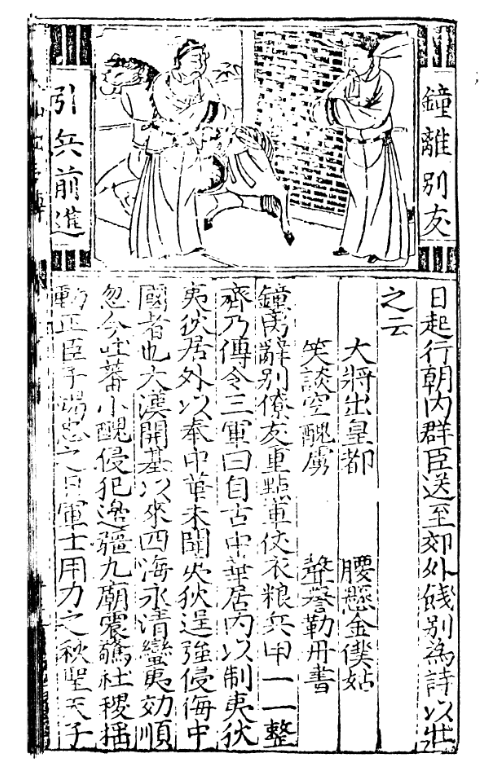 鐘離別友
引兵前進
日起行朝內群臣送至郊外餞別為詩以壯
之云
大將出皇都　腰懸金僕姑
笑談空醜虜　聲譽勒丹書
鐘离辭別僚友重點軍仗衣粮兵甲一一整
齊乃傳令三軍曰自古中華居內以制夷狄
夷狄居外以奉中華未聞夷狄逞強侵侮中
國者也大漢開基以來四海永清蠻夷効順
忽今吐蕃小醜侵犯邊疆九廟震驚社稷揺
動正臣子竭忠之日軍士用力之秋聖天子